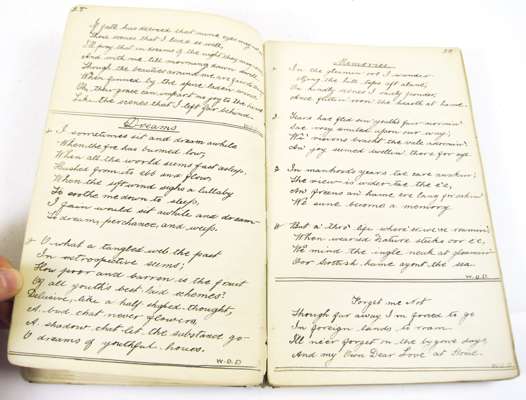 28
If fate has decreed that mine eyes may ne'er
Those scenes that I loved so well,
I'll pray that in dreams of the night they may
And with me till morning dawn dwell.
Though the beauties around me are
When fanned by the spice laden
Oh, they ne'er can impart no joy to the
Like the scenes that I left far behind.
Dreams
I sometimes sit and dream awhile
When the fire has burned low,
When all the world seems fast asleep,
Hushed from its ebb and flow,
When the soft wind sighs a lullaby
To soothe me down to sleep,
I fain would sit awhile and dream
To dream, perchance, and weep.
O what a tangled web the past
In retrospective seems,
How poor and barren is the fruit
Of all youth's best laid schemes?
Delusive, like a half shaped thought,
A bud that never flowers,
A shadow chat let the substance go
O dreams of youthful hours.
W.D.D
Memories
In the gloamin' oot I wander
Alang the hill taps aft alane,
On kindly scenes I aften ponder,
Ance flittin' roon the hearth at hame.
Years hae fled sin' youth's fair mornin'
Sae very smiled upon our way;
We' visions bricht the vale adornin'
An' joy seemed settlin' there for aye.
In manhood's years tae care awakin';
The view is wider tae the e'e,
An' friens an' hame are lang forsaken
We sune become a memory
But a' thro' life where'er we're roamin'
When wearied Nature steeks oor e'e,
We mind the ingle neuk at gloamin'
Oor Scottish hame ayont the sea.
W.D.D
Forget me Not
Though far away I'm forced to go
In foreign lands to roam
I'll ne'er forget on the bygone days,
And my Own Dear Love at Home.